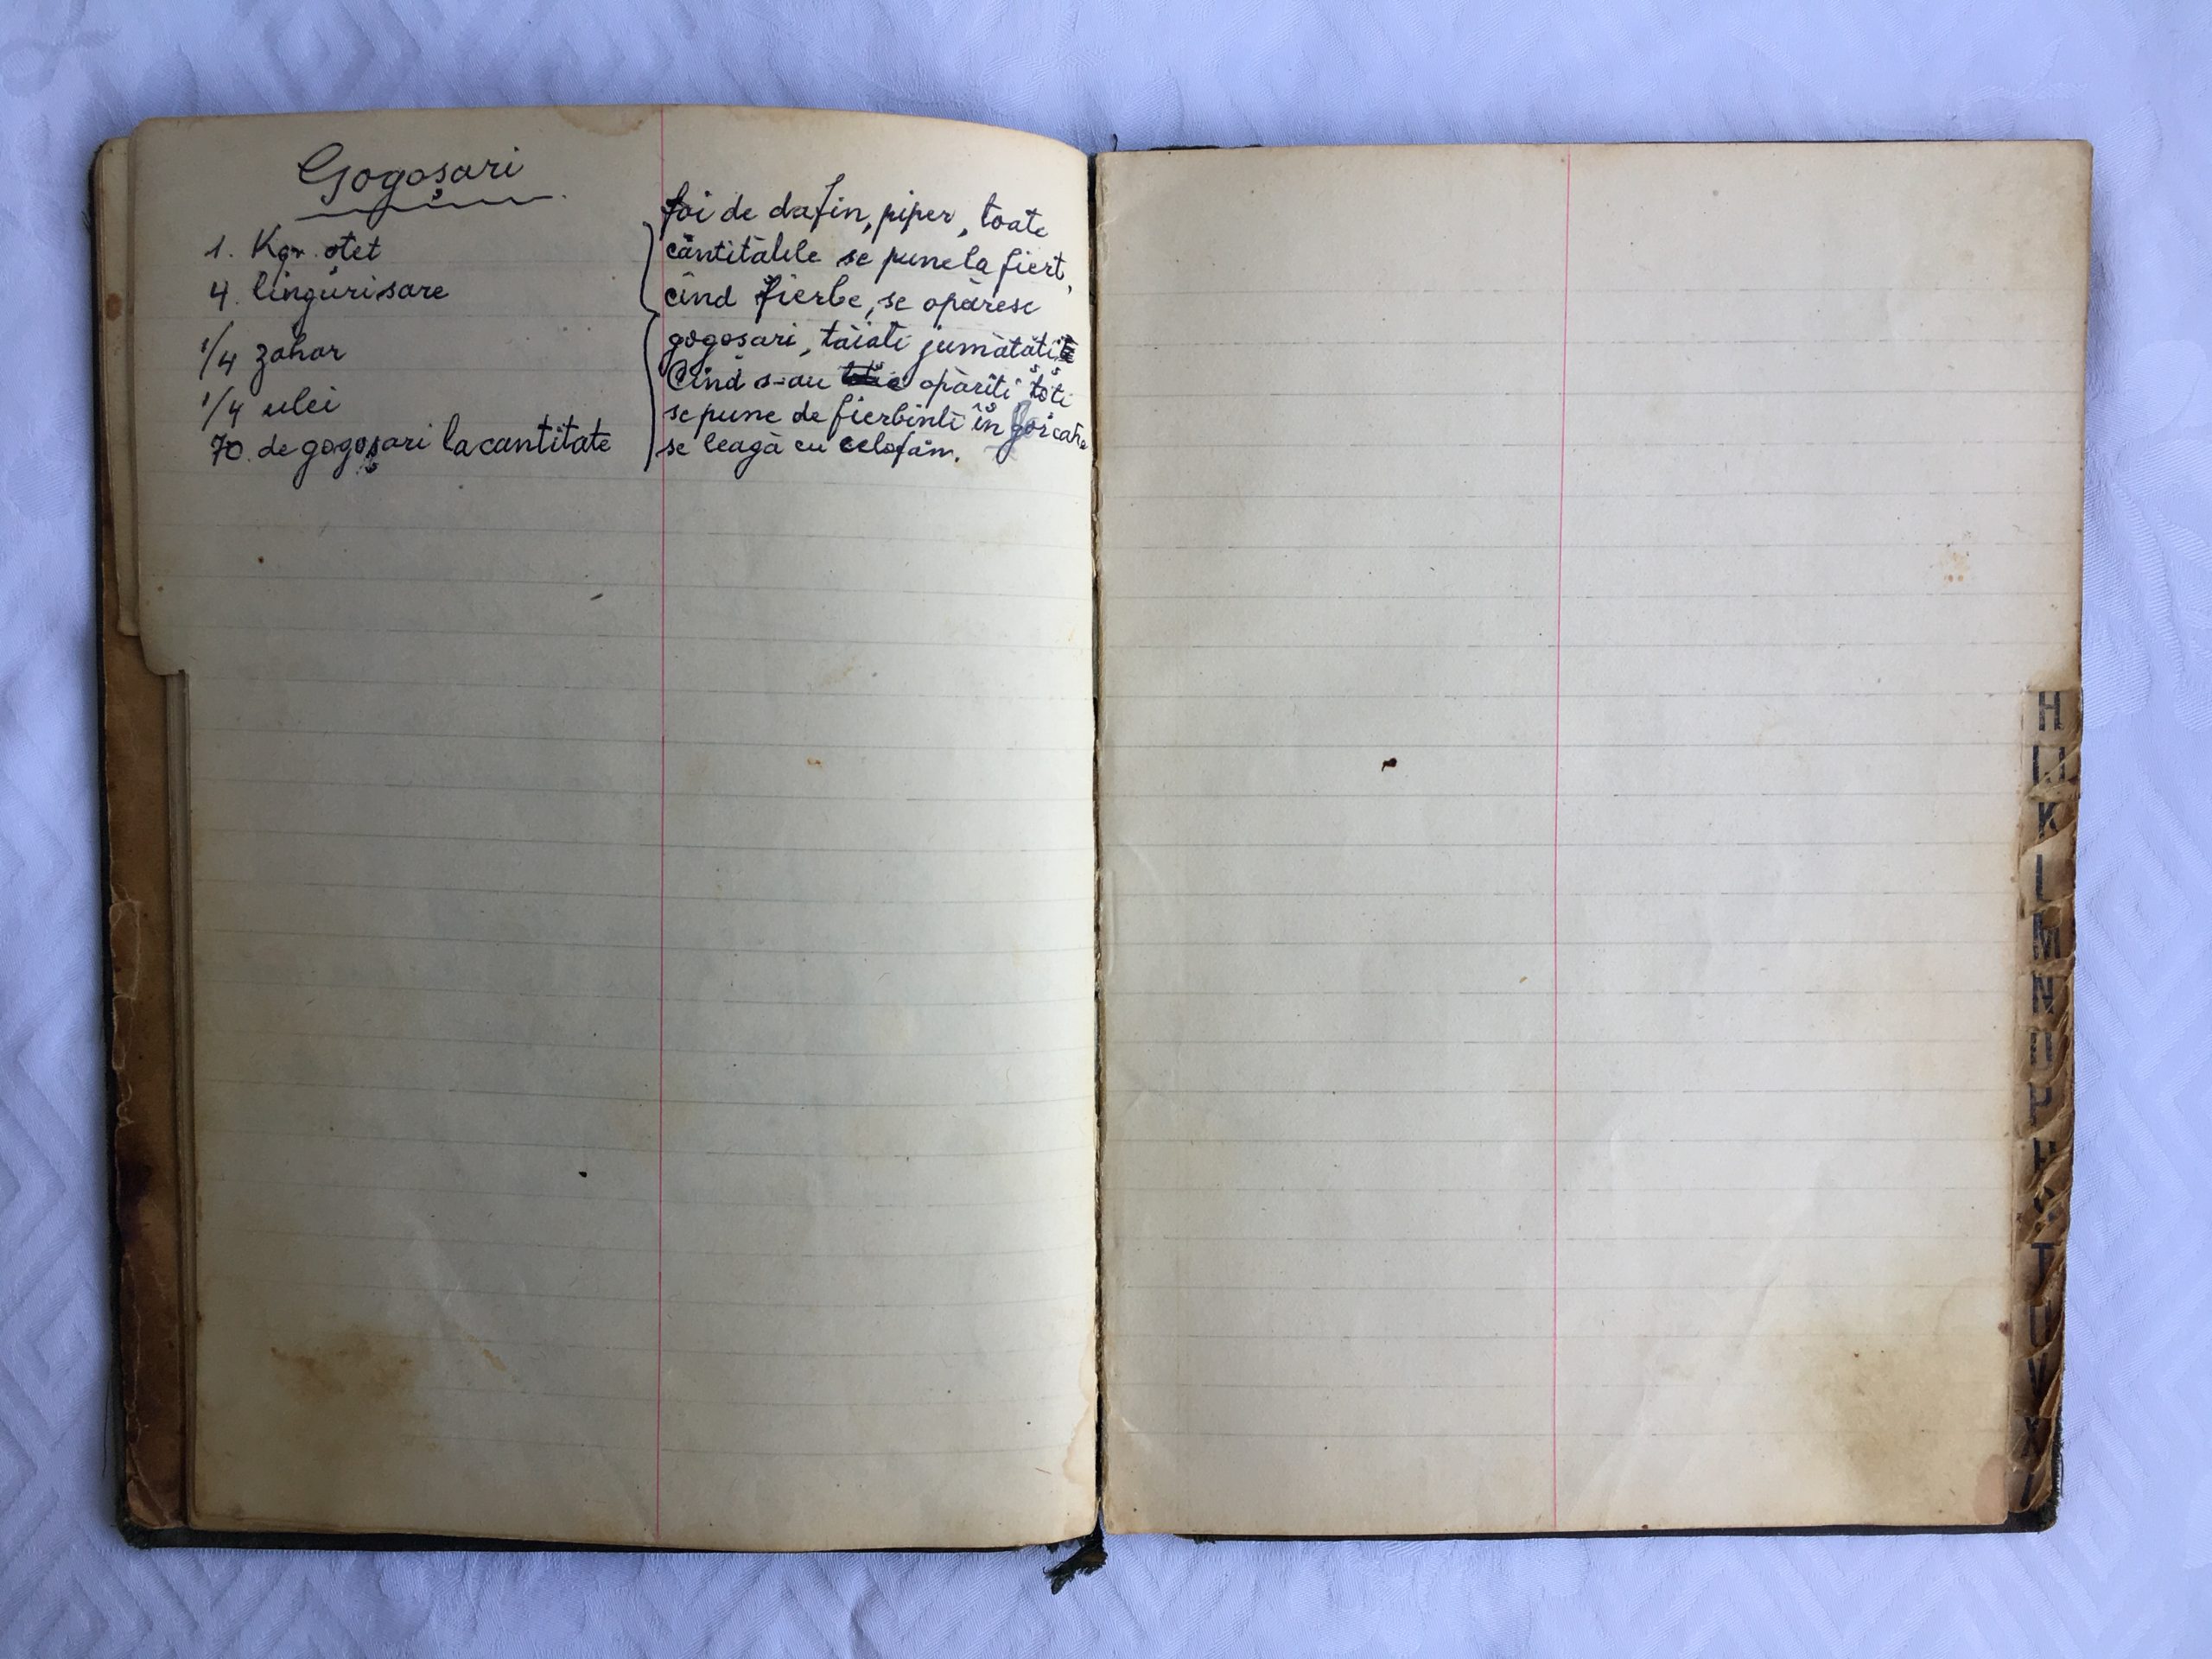 Gogoșari
1. Kgr. oțet
4. linguri sare
1/4 zahar
1/4 ulei
70. de gogoșari la cantitate
foi de dafin, piper, toate
cantitățile se pune la fiert,
cînd fierbe, se opăresc
gogoșari, tăiați jumătăți
Cînd s-au opăriți toți
se pune de fierbinți în borcane
se leagă cu celofan.
H
IJ
K
L
M
N
O
P
R
S
T
U
V
X